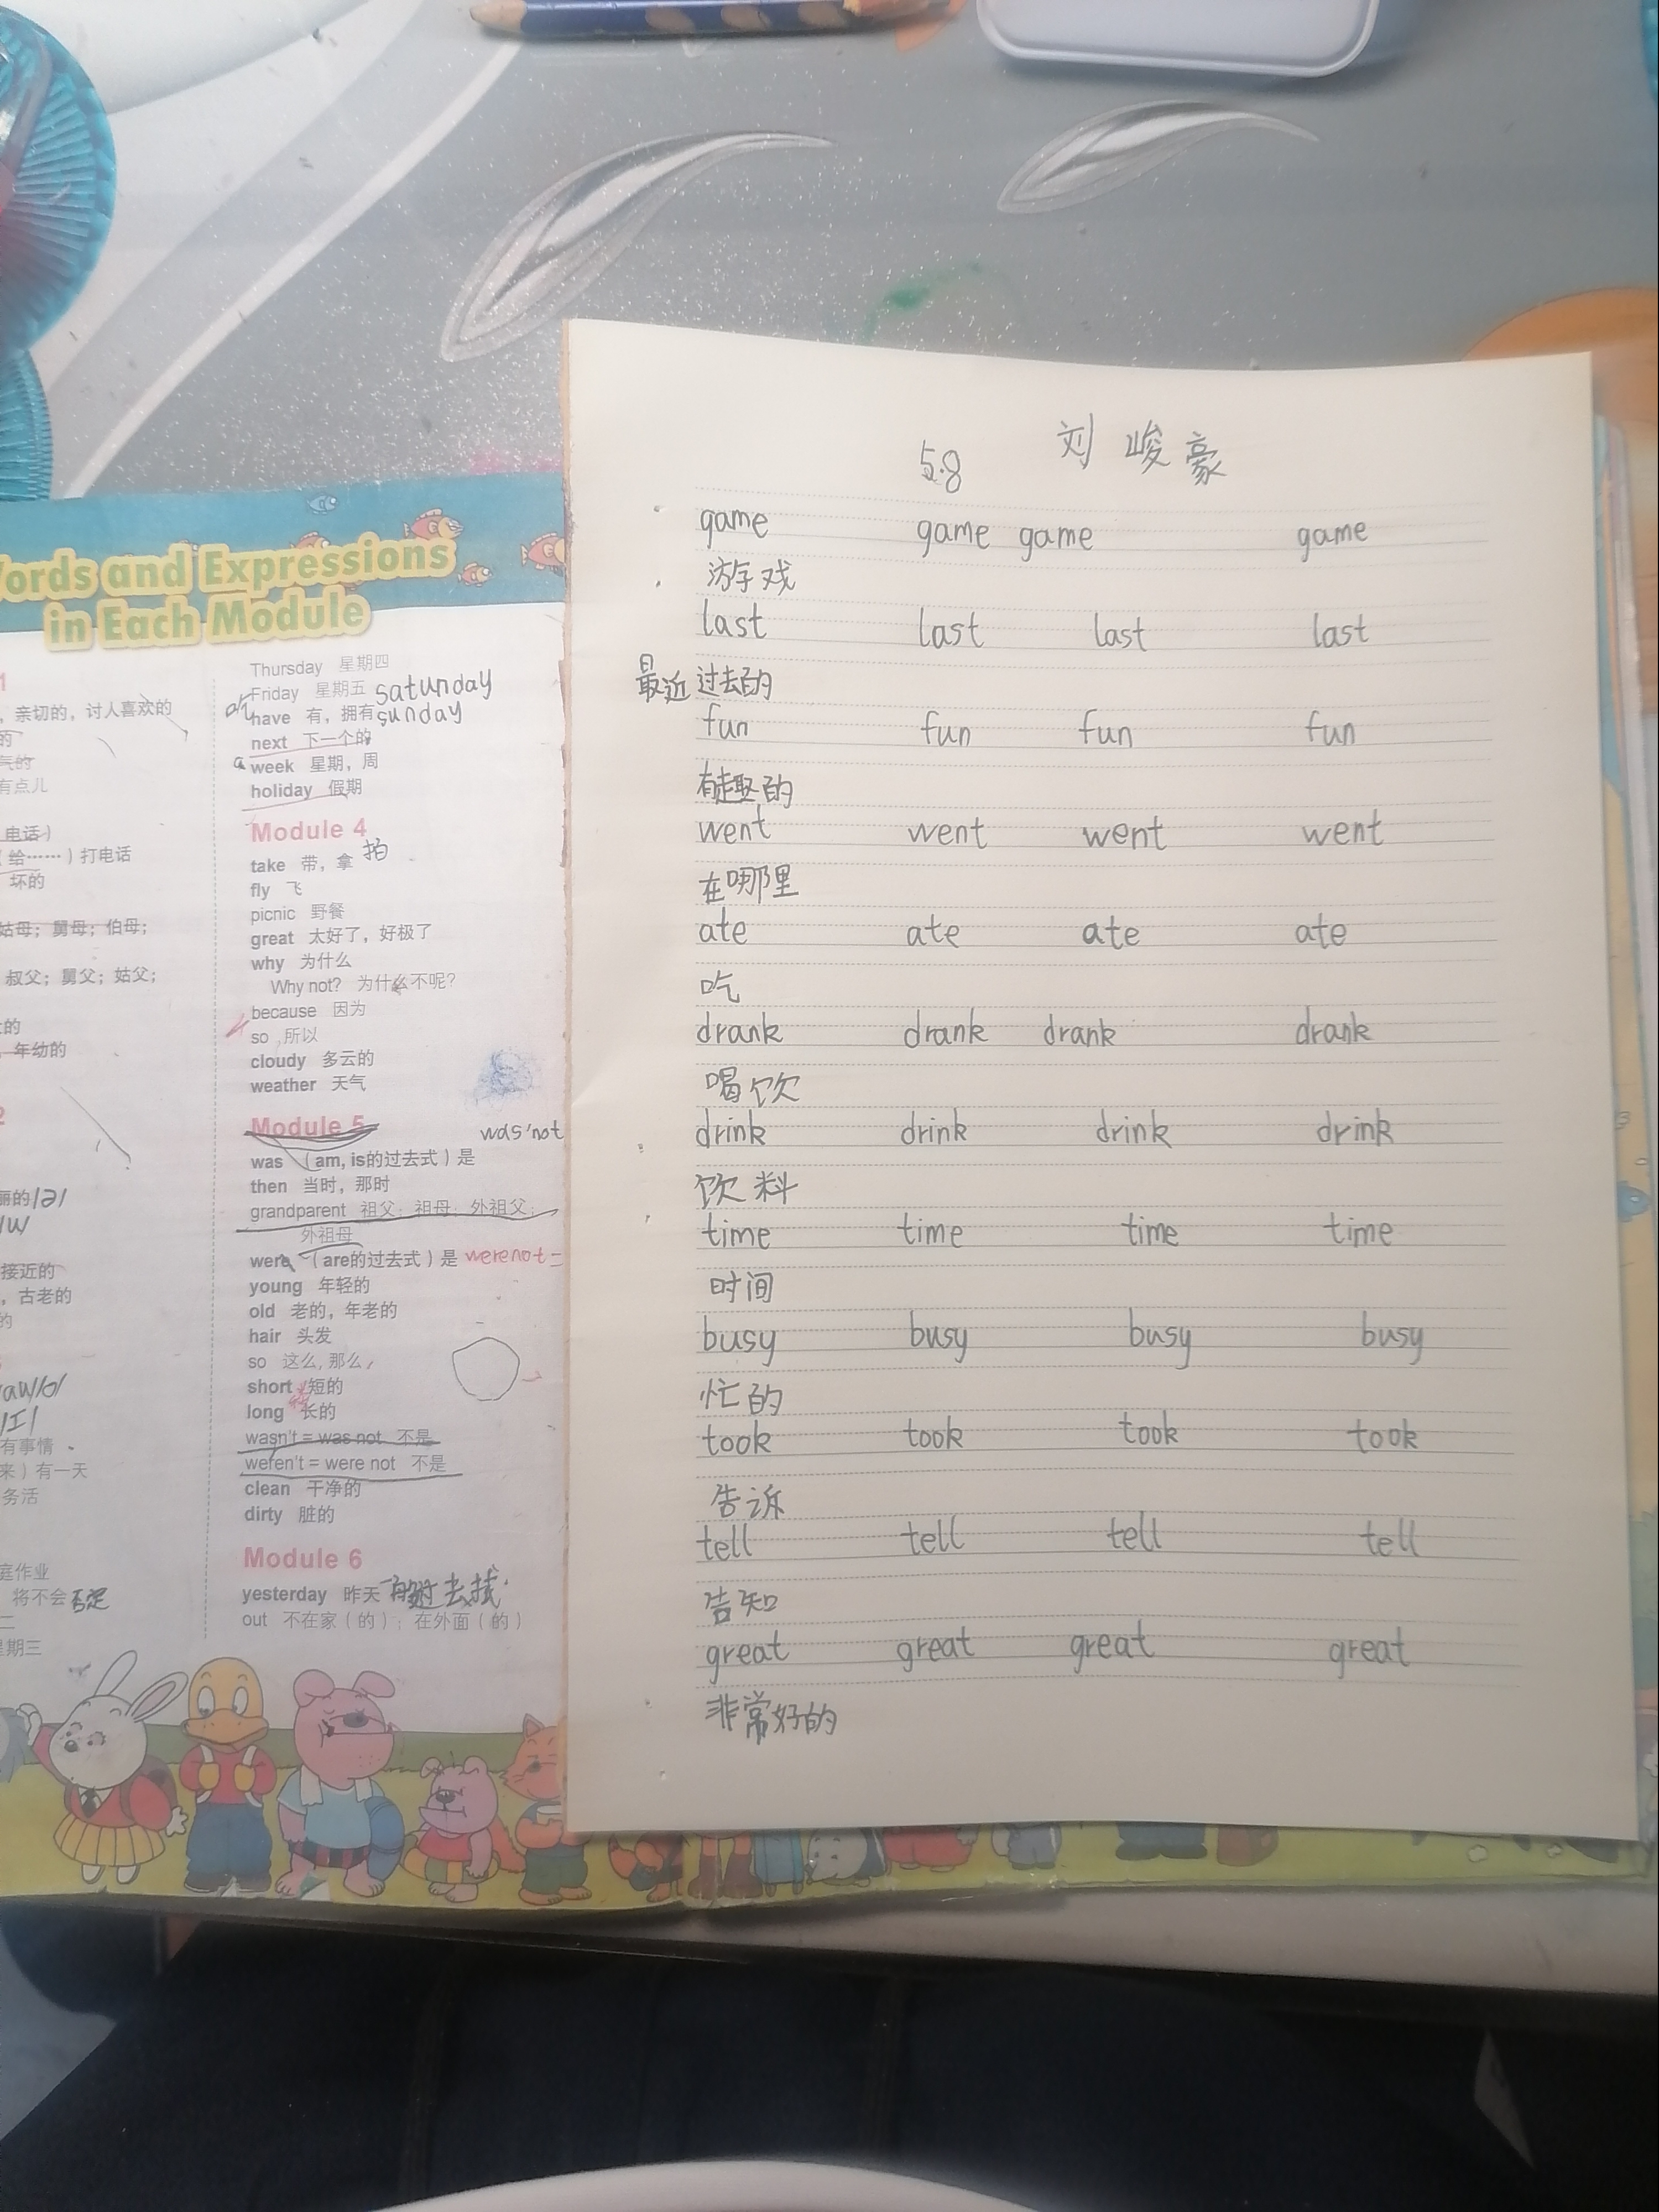 ords and Expressions
in Each Module
，亲切的，讨人喜欢的
的
气的
有点儿
电话）
（给……）打电话
坏的
姑母；舅母；伯母；
叔父；舅父；姑父；
的
年幼的
2
丽的/ə/
接近的
，古老的
的
有事情
来）有一天
务活
庭作业
将不会 否定
二
星期三
Thursday 星期四
Friday 星期五 satunday
have 有，拥有 sunday
next 下一个的
a week 星期，周
holiday 假期
Module 4
take 带，拿 拍
fly 飞
picnic 野餐
great 太好了，好极了
why 为什么
Why not? 为什么不呢？
because 因为
so 所以
cloudy 多云的
weather 天气
Module 5 was'not
was （am, is的过去式）是
then 当时，那时
grandparent 祖父；祖母；外祖父；
外祖母
were （are的过去式）是 werenot =
young 年轻的
old 老的，年老的
hair 头发
so 这么，那么
short 短的
long 长的
wasn't = was not 不是
weren't = were not 不是
clean 干净的
dirty 脏的
Module 6
yesterday 昨天
out 不在家（的）；在外面（的）
5.8 刘峻豪
game game game game
游戏
last last last last
最近过去的
fun fun fun fun
有趣的
went went went went
在哪里
ate ate ate ate
吃
drank drank drank drank
喝饮
drink drink drink drink
饮料
time time time time
时间
busy busy busy busy
忙的
took took took took
告诉
tell tell tell tell
告知
great great great great
非常好的